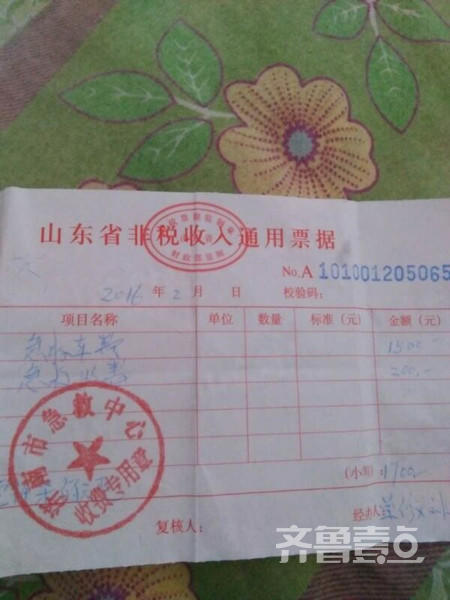 山东省非税收入通用票据
财政部监制
No.A 101001205065
2016 年 2 月 日 校验码：
项目名称 单位 数量 标准（元） 金额（元）
急救车费 1500.-
200.-
（小写）1700.-
济南市急救中心
收费专用章
复核人： 经办人
齐鲁壹点